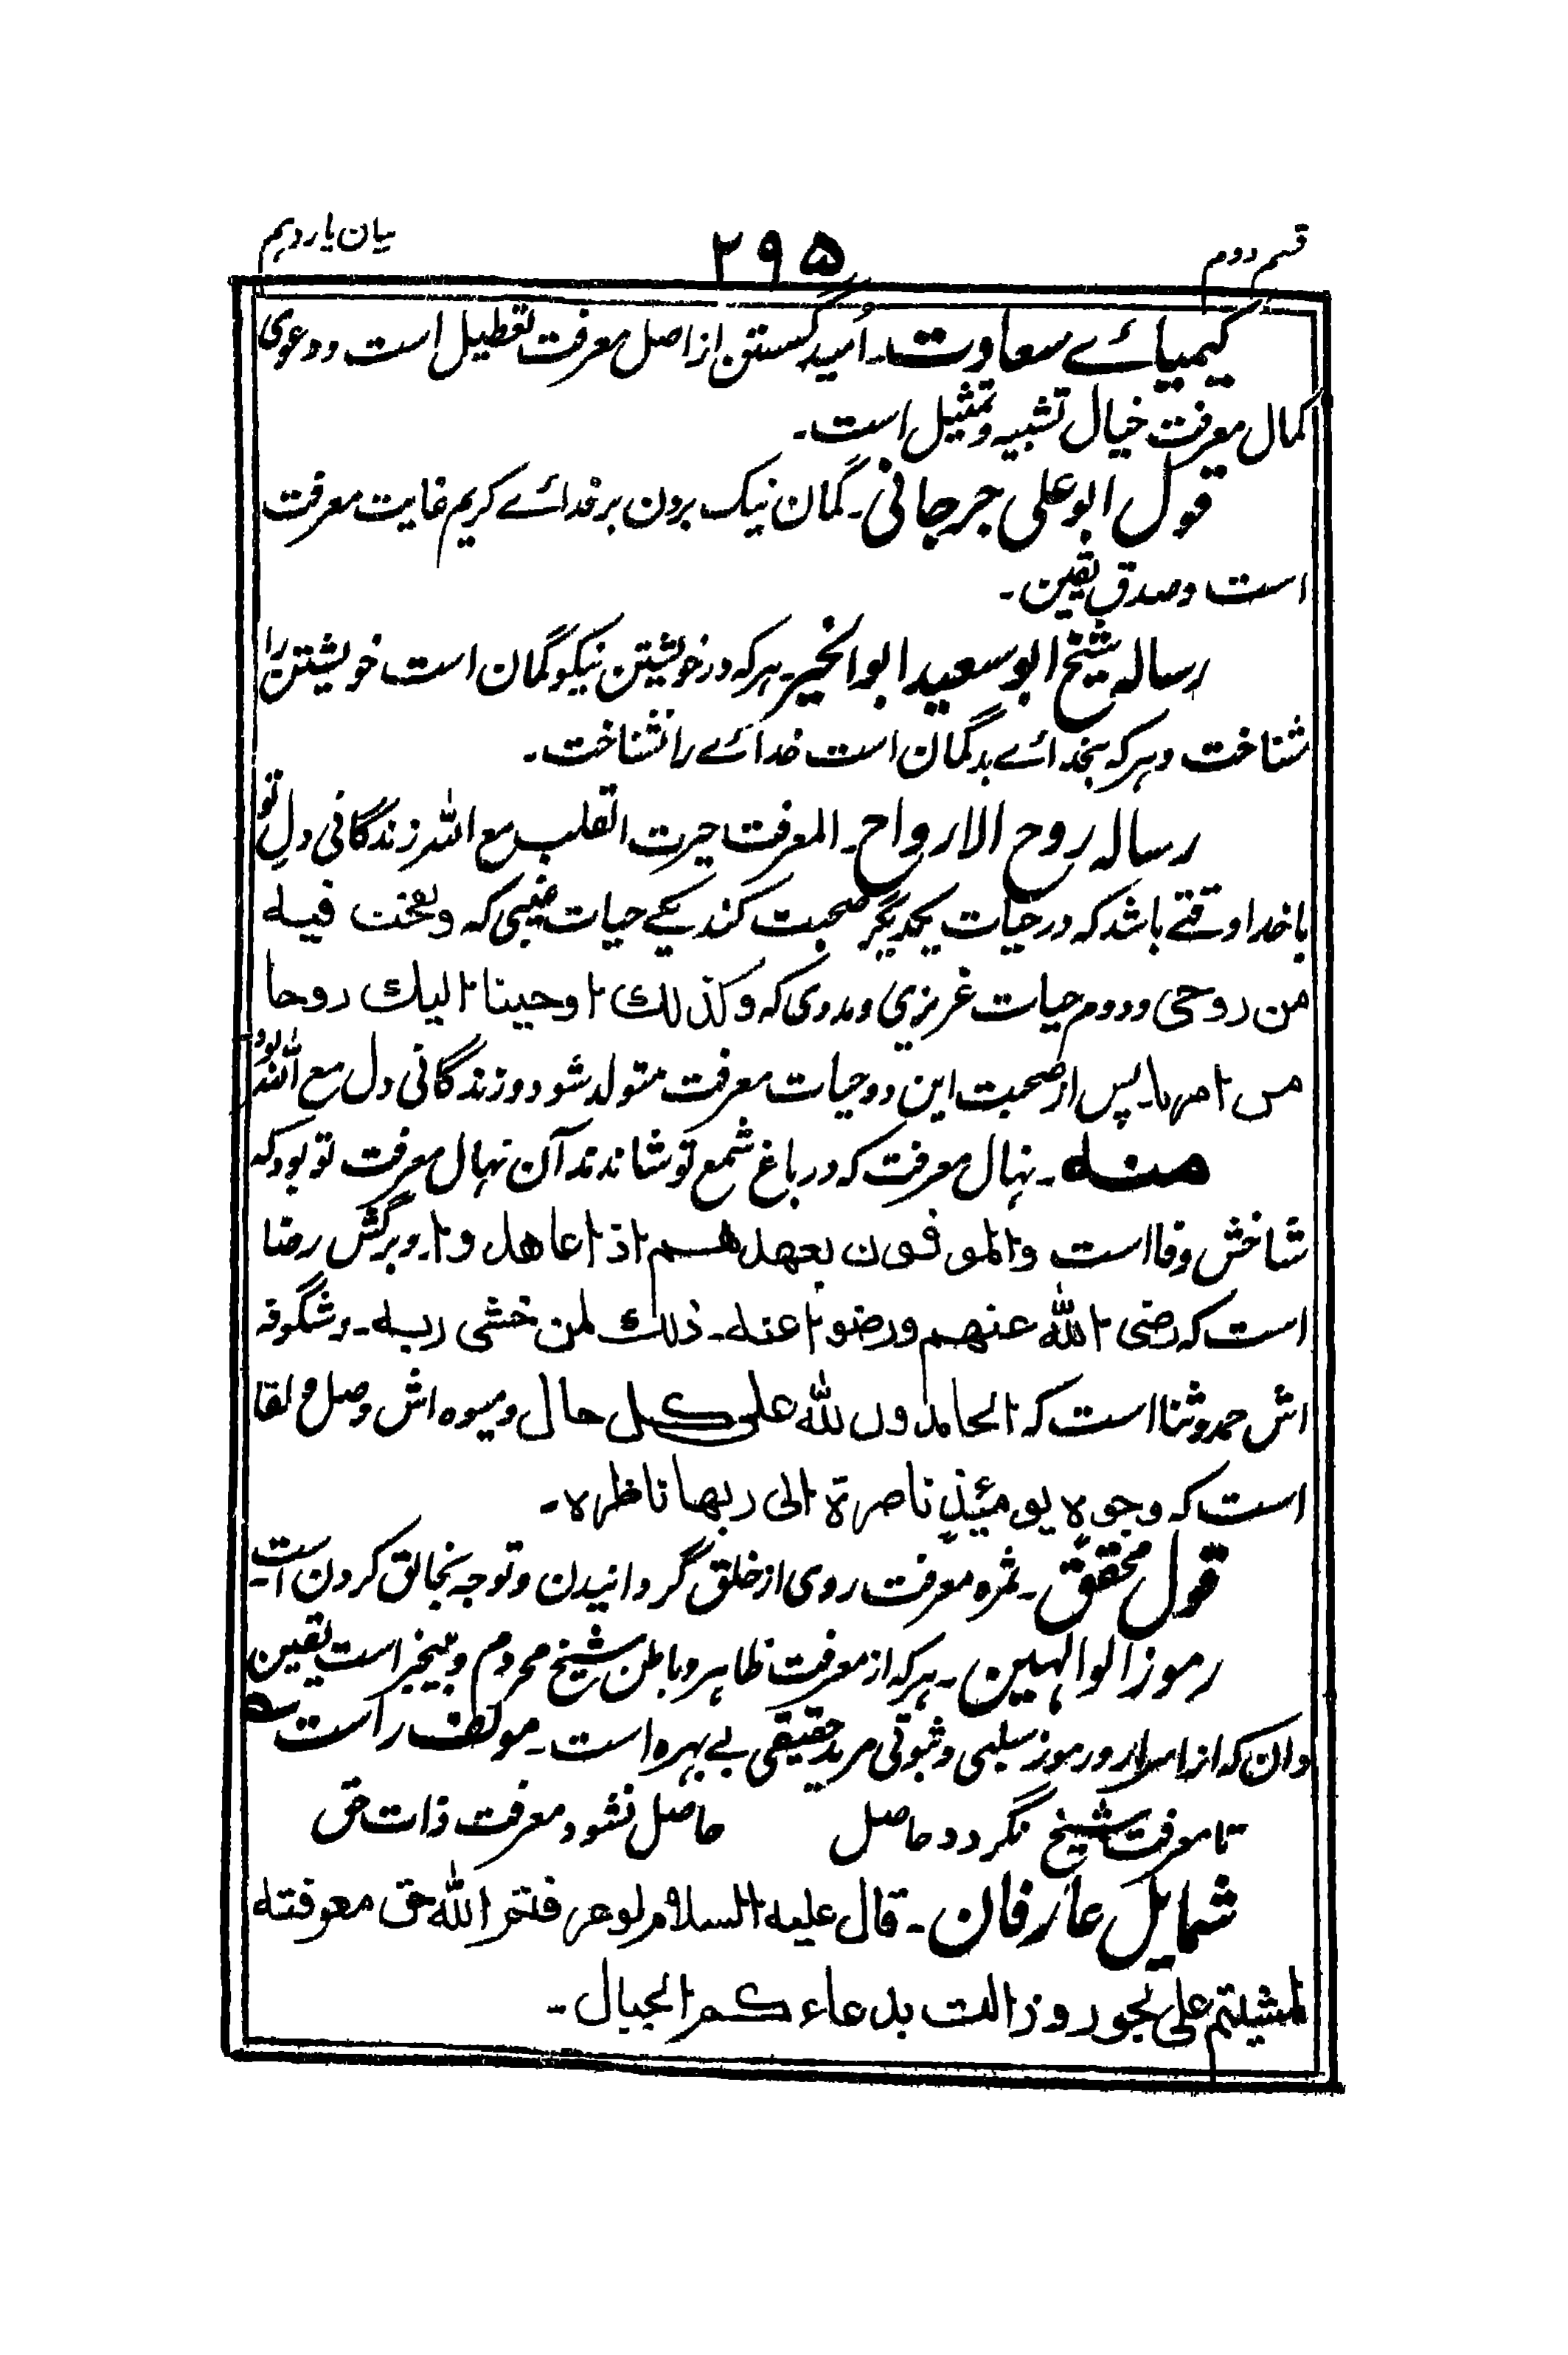 قسم دوم
۲۹۵
بیان یازدہم
کیمیائے سعادت۔ اُمید گسستن از اصل معرفت تعطیل است و دعوی
کمال معرفت خیال تشبیہ و تمثیل است۔
قول ابو علی جرجانی۔ گمان نیک بردن بر خدائے کریم غایت معرفت
است و صدق یقین۔
رسالہ شیخ ابو سعید ابو الخیر۔ ہر کہ در خویشتن نیکو گمان است خویشتن را
شناخت و ہر کہ بخدائے بدگمان است خدائے را نشناخت۔
رسالہ روح الارواح۔ المعرفت حیرت القلب مع اللہ زندگانی دلِ تو
با خدا وقتے باشد کہ در حیات یکدیگر صحبت کند یکے حیات غیبی کہ ونفخت فیہ
من روحی و دوم حیات غریزی و مددی کہ وکذلك اوحینا الیك روحا
من امرنا۔ پس از صحبت این دو حیات معرفت متولد شود و زندگانی دل مع اللہ بود
منہ۔ نہال معرفت کہ در باغ شمع تو شاندند آن نہال معرفت تو بود کہ
شاخش وفا است والموفون بعهدهم اذا عاهدوا۔ و برگش رضا
است کہ رضی اللہ عنهم ورضوا عنه۔ ذلك لمن خشی ربه۔ و شگوفہ
اش حمد و ثنا است کہ الحامدون للہ علی کل حال و میوہ اش وصل و لقا
است کہ وجوہ یومئذٍ ناصرة الی ربها ناظرہ۔
قول محقق۔ ثمرہ معرفت روی از خلق گردانیدن و توجہ بخالق کردن است۔
رموز الوالہین۔ ہر کہ از معرفت ظاہر و باطن شیخ محروم و بیخبر است یقین
دان کہ از اسرار و رموز سلبی و ثبوتی مرید حقیقی بے بہرہ است۔ مولف راست
تا معرفت شیخ نگردد حاصل حاصل نشود معرفت ذات حق
شمایل عارفان۔ قال علیه السلام لو عرفتم اللہ حق معرفته
لمشیتم علی البحور و زالت بدعاءکم الجبال۔